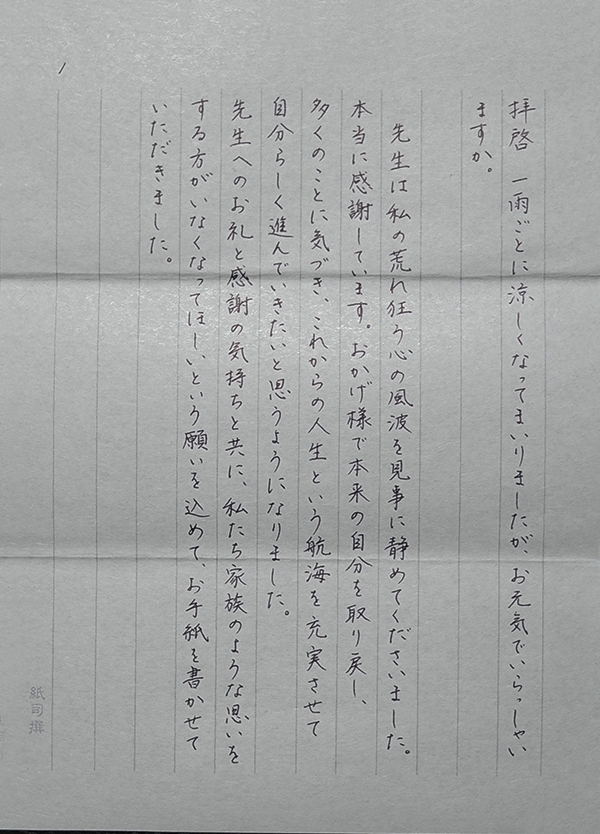 拝啓　一雨ごとに涼しくなってまいりましたが、お元気でいらっしゃい
ますか。
先生は私の荒れ狂う心の風波を見事に静めてくださいました。
本当に感謝しています。おかげ様で本来の自分を取り戻し、
多くのことに気づき、これからの人生という航海を充実させて
自分らしく進んでいきたいと思うようになりました。
先生へのお礼と感謝の気持ちと共に、私たち家族のような思いを
する方がいなくなってほしいという願いを込めて、お手紙を書かせて
いただきました。
1
紙司撰